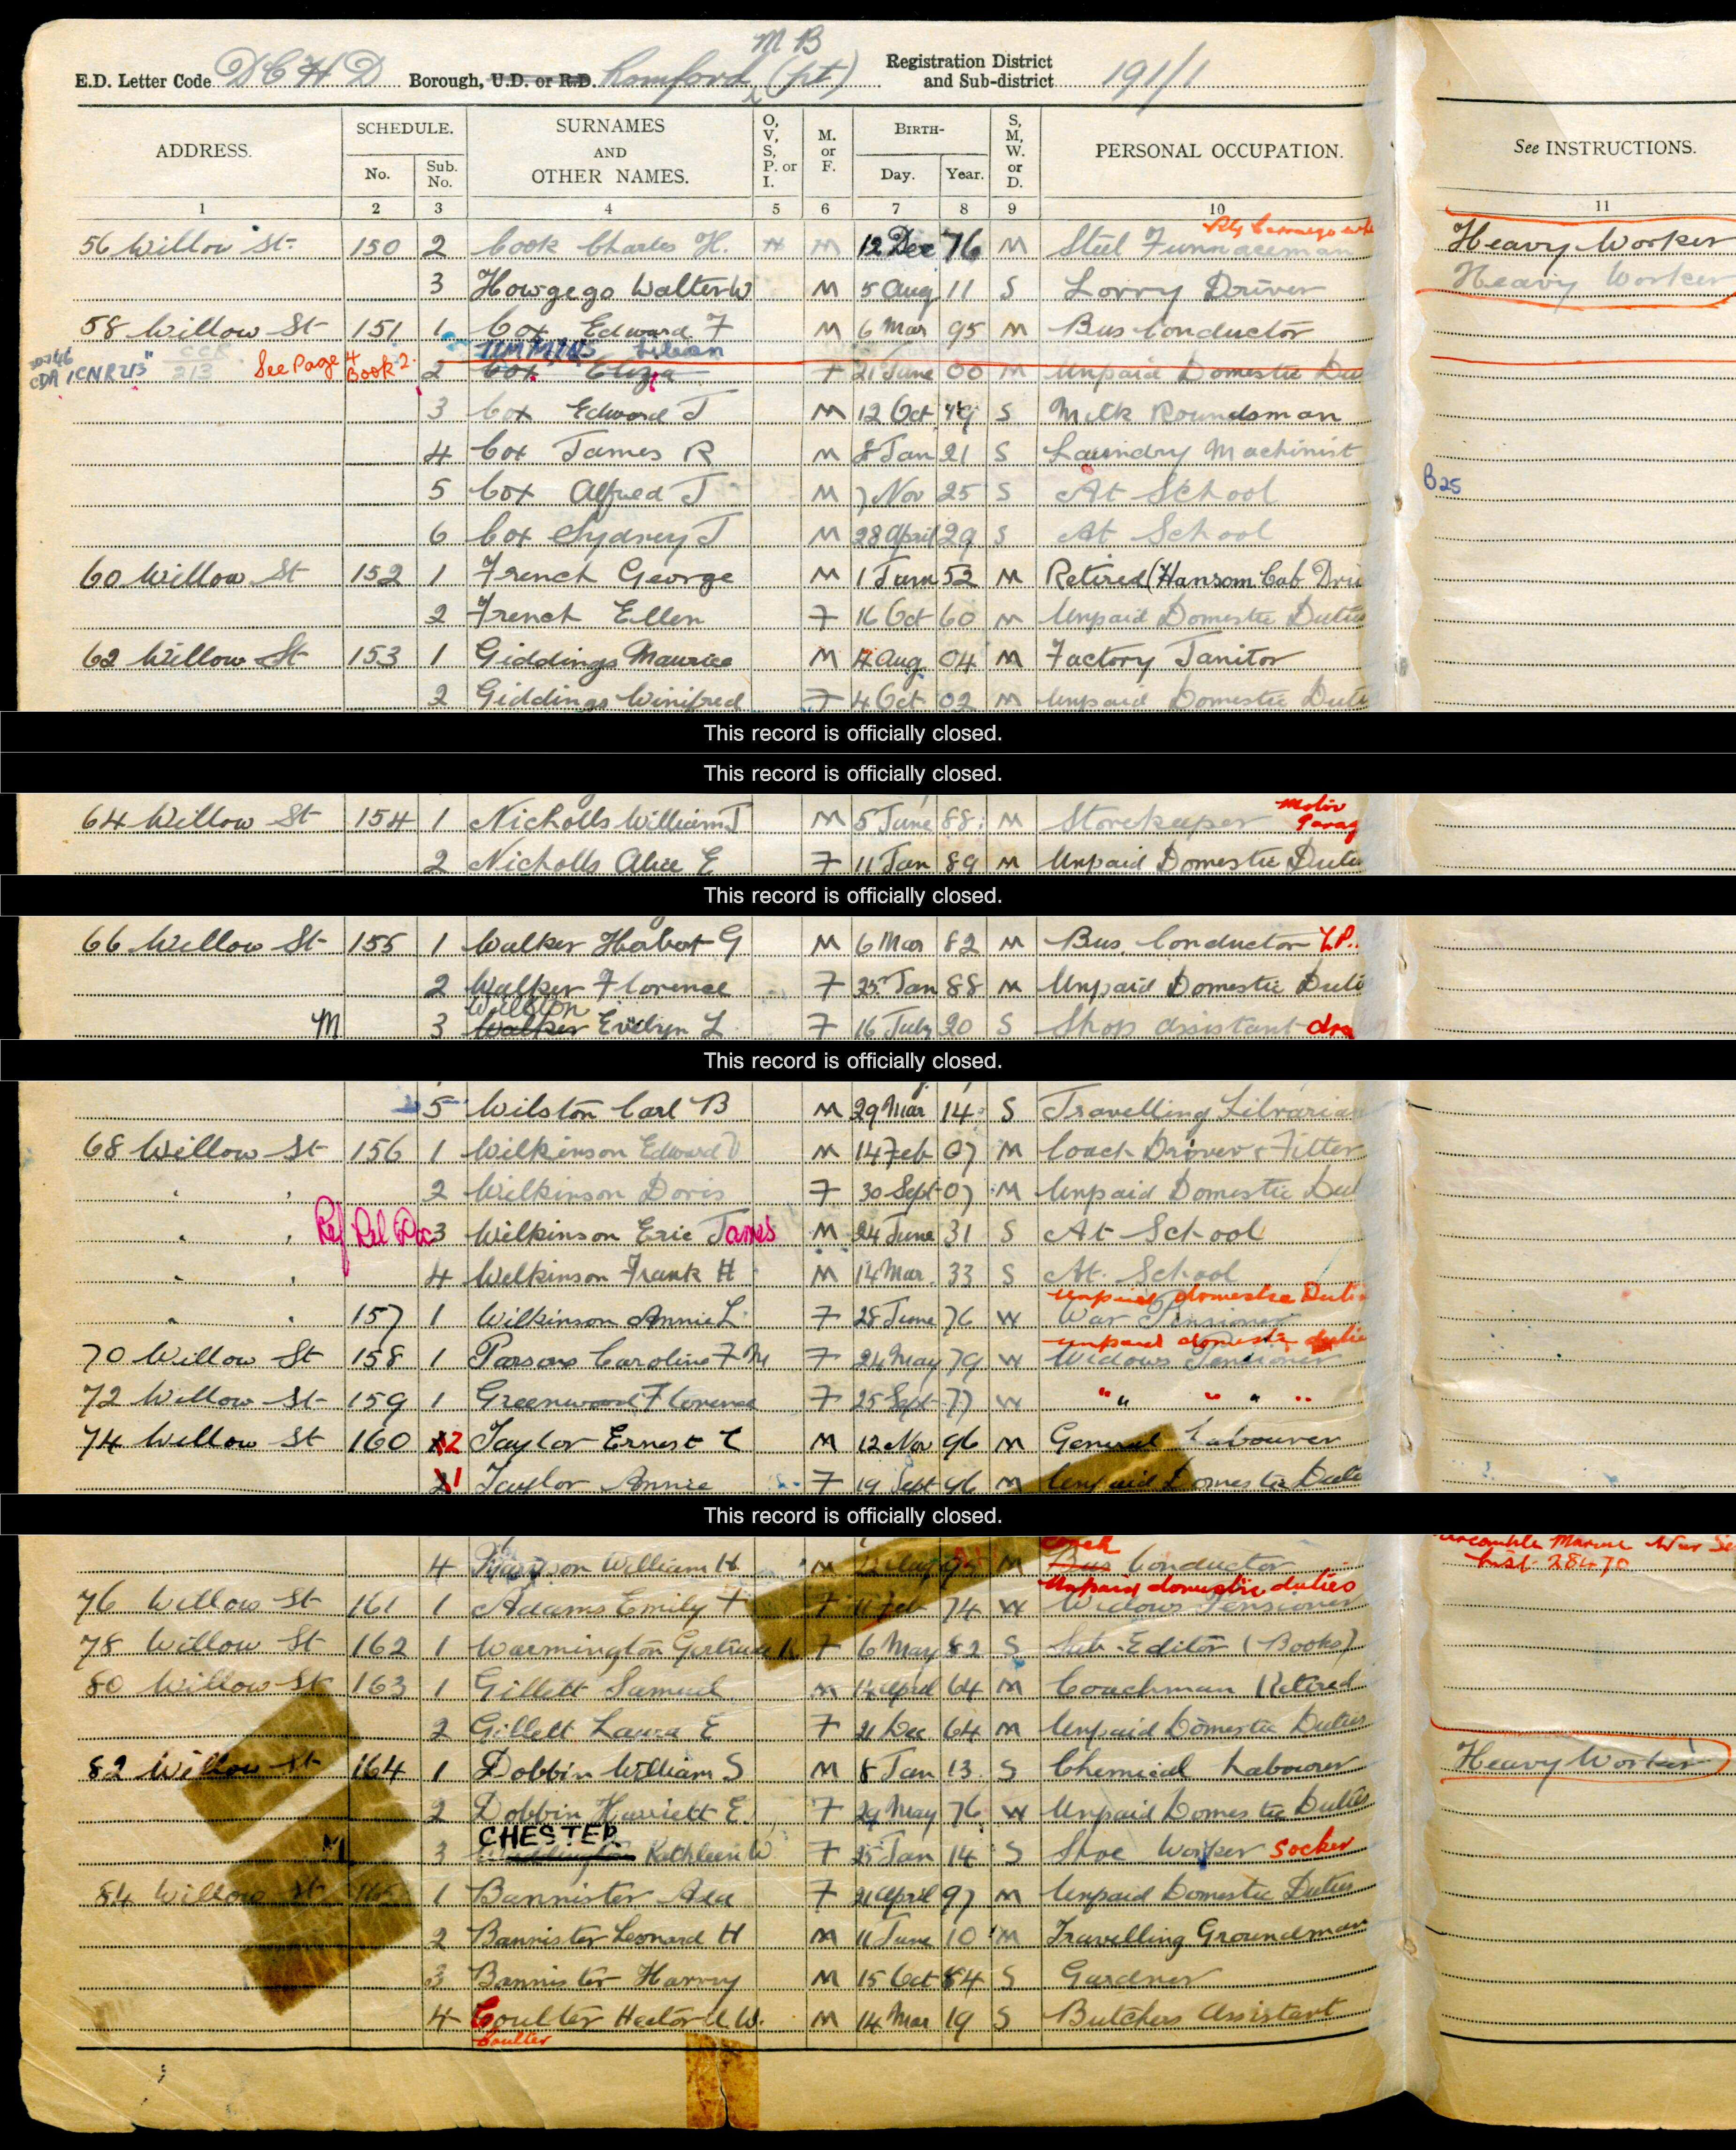 M B
E.D. Letter Code DCHD Borough, U.D. or R.D. Romford (pt) Registration District and Sub-district 191/1
ADDRESS. SCHEDULE. SURNAMES AND OTHER NAMES. O, V, S, P. or I. M. or F. BIRTH- S, M, W. or D. PERSONAL OCCUPATION. See INSTRUCTIONS.
No. Sub. No. Day. Year.
1 2 3 4 5 6 7 8 9 10 11
56 Willow St. 150 2 Cook Charles H. M 12 Dec 76 M Steel Furnaceman Heavy Worker
3 Howgego Walter W M 5 Aug 11 S Lorry Driver Heavy Worker
58 Willow St 151 1 Cox Edward F M 6 Mar 95 M Bus Conductor
TIMMINS Lilian
CDA 1CNR 213 CCR 213 See Page 4 Book 2. 2 Cox Eliza F 21 June 00 M Unpaid Domestic Du
3 Cox Edward J M 12 Oct 19 S Milk Roundsman
4 Cox James R M 8 Jan 21 S Laundry Machinist
5 Cox Alfred J M 7 Nov 25 S At School B25
6 Cox Sydney J M 28 April 29 S At School
60 Willow St 152 1 French George M 1 Jan 52 M Retired (Hansom Cab Driv
2 French Ellen F 16 Oct 60 M Unpaid Domestic Duties
62 Willow St 153 1 Giddings Maurice M Aug 04 M Factory Janitor
2 Giddings Winifred F 4 Oct 02 M Unpaid Domestic Duti
This record is officially closed.
This record is officially closed.
64 Willow St 154 1 Nicholls William J M 5 June 88 M Storekeeper Motor Garag
2 Nicholls Alice E F 11 Jan 89 M Unpaid Domestic Dutie
This record is officially closed.
66 Willow St 155 1 Walker Herbert G M 6 Mar 82 M Bus Conductor L.P.
2 Walker Florence F 25 Jan 88 M Unpaid Domestic Duti
Wilston
M 3 Walker Evelyn L F 16 July 20 S Shop Assistant dra
This record is officially closed.
5 Wilston Carl B M 29 Mar 14 S Travelling Librarian
68 Willow St 156 1 Wilkinson Edward V M 14 Feb 07 M Coach Driver & Fitter
" " 2 Wilkinson Doris F 30 Sept 07 M Unpaid Domestic Dut
" " 3 Wilkinson Eric James M 24 June 31 S At School
" " 4 Wilkinson Frank H M 14 Mar 33 S At School
Unpaid domestic Duties
" " 157 1 Wilkinson Annie L F 28 June 76 W War Pensioner
unpaid domestic duties
70 Willow St 158 1 Parsons Caroline F M F 24 May 79 W Widows Pensioner
72 Willow St 159 1 Greenwood Florence F 25 Sept 77 W " " " " "
74 Willow St 160 2 Taylor Ernest C M 12 Nov 96 M General Labourer
1 Taylor Annie F 19 Sept 96 M Unpaid Domestic Dutie
This record is officially closed.
4 William H M M Bus Conductor
Inst. 28470
Unpaid domestic duties
76 Willow St 161 1 Adams Emily F F 11 Feb 74 W Widows Pensioner
78 Willow St 162 1 Warmington Gertrude K F 6 May 82 S Sub-Editor (Books)
80 Willow St 163 1 Gillett Samuel M 14 April 64 M Coachman Retired
2 Gillett Laura E F 21 Dec 64 M Unpaid Domestic Duties
82 Willow St 164 1 Dobbin William S M 8 Jan 13 S Chemical Labourer Heavy Worker
2 Dobbin Harriett E F 29 May 76 W Unpaid Domestic Duties
CHESTER
M 3 Kathleen W F 25 Jan 14 S Shoe Worker Socker
84 Willow St 165 1 Bannister Ada F 21 April 97 M Unpaid Domestic Duties
2 Bannister Leonard H M 11 June 10 M Travelling Groundman
3 Bannister Harry M 15 Oct 84 S Gardner
4 Coulter Hector A W. M 14 Mar 19 S Butchers Assistant
Coulter